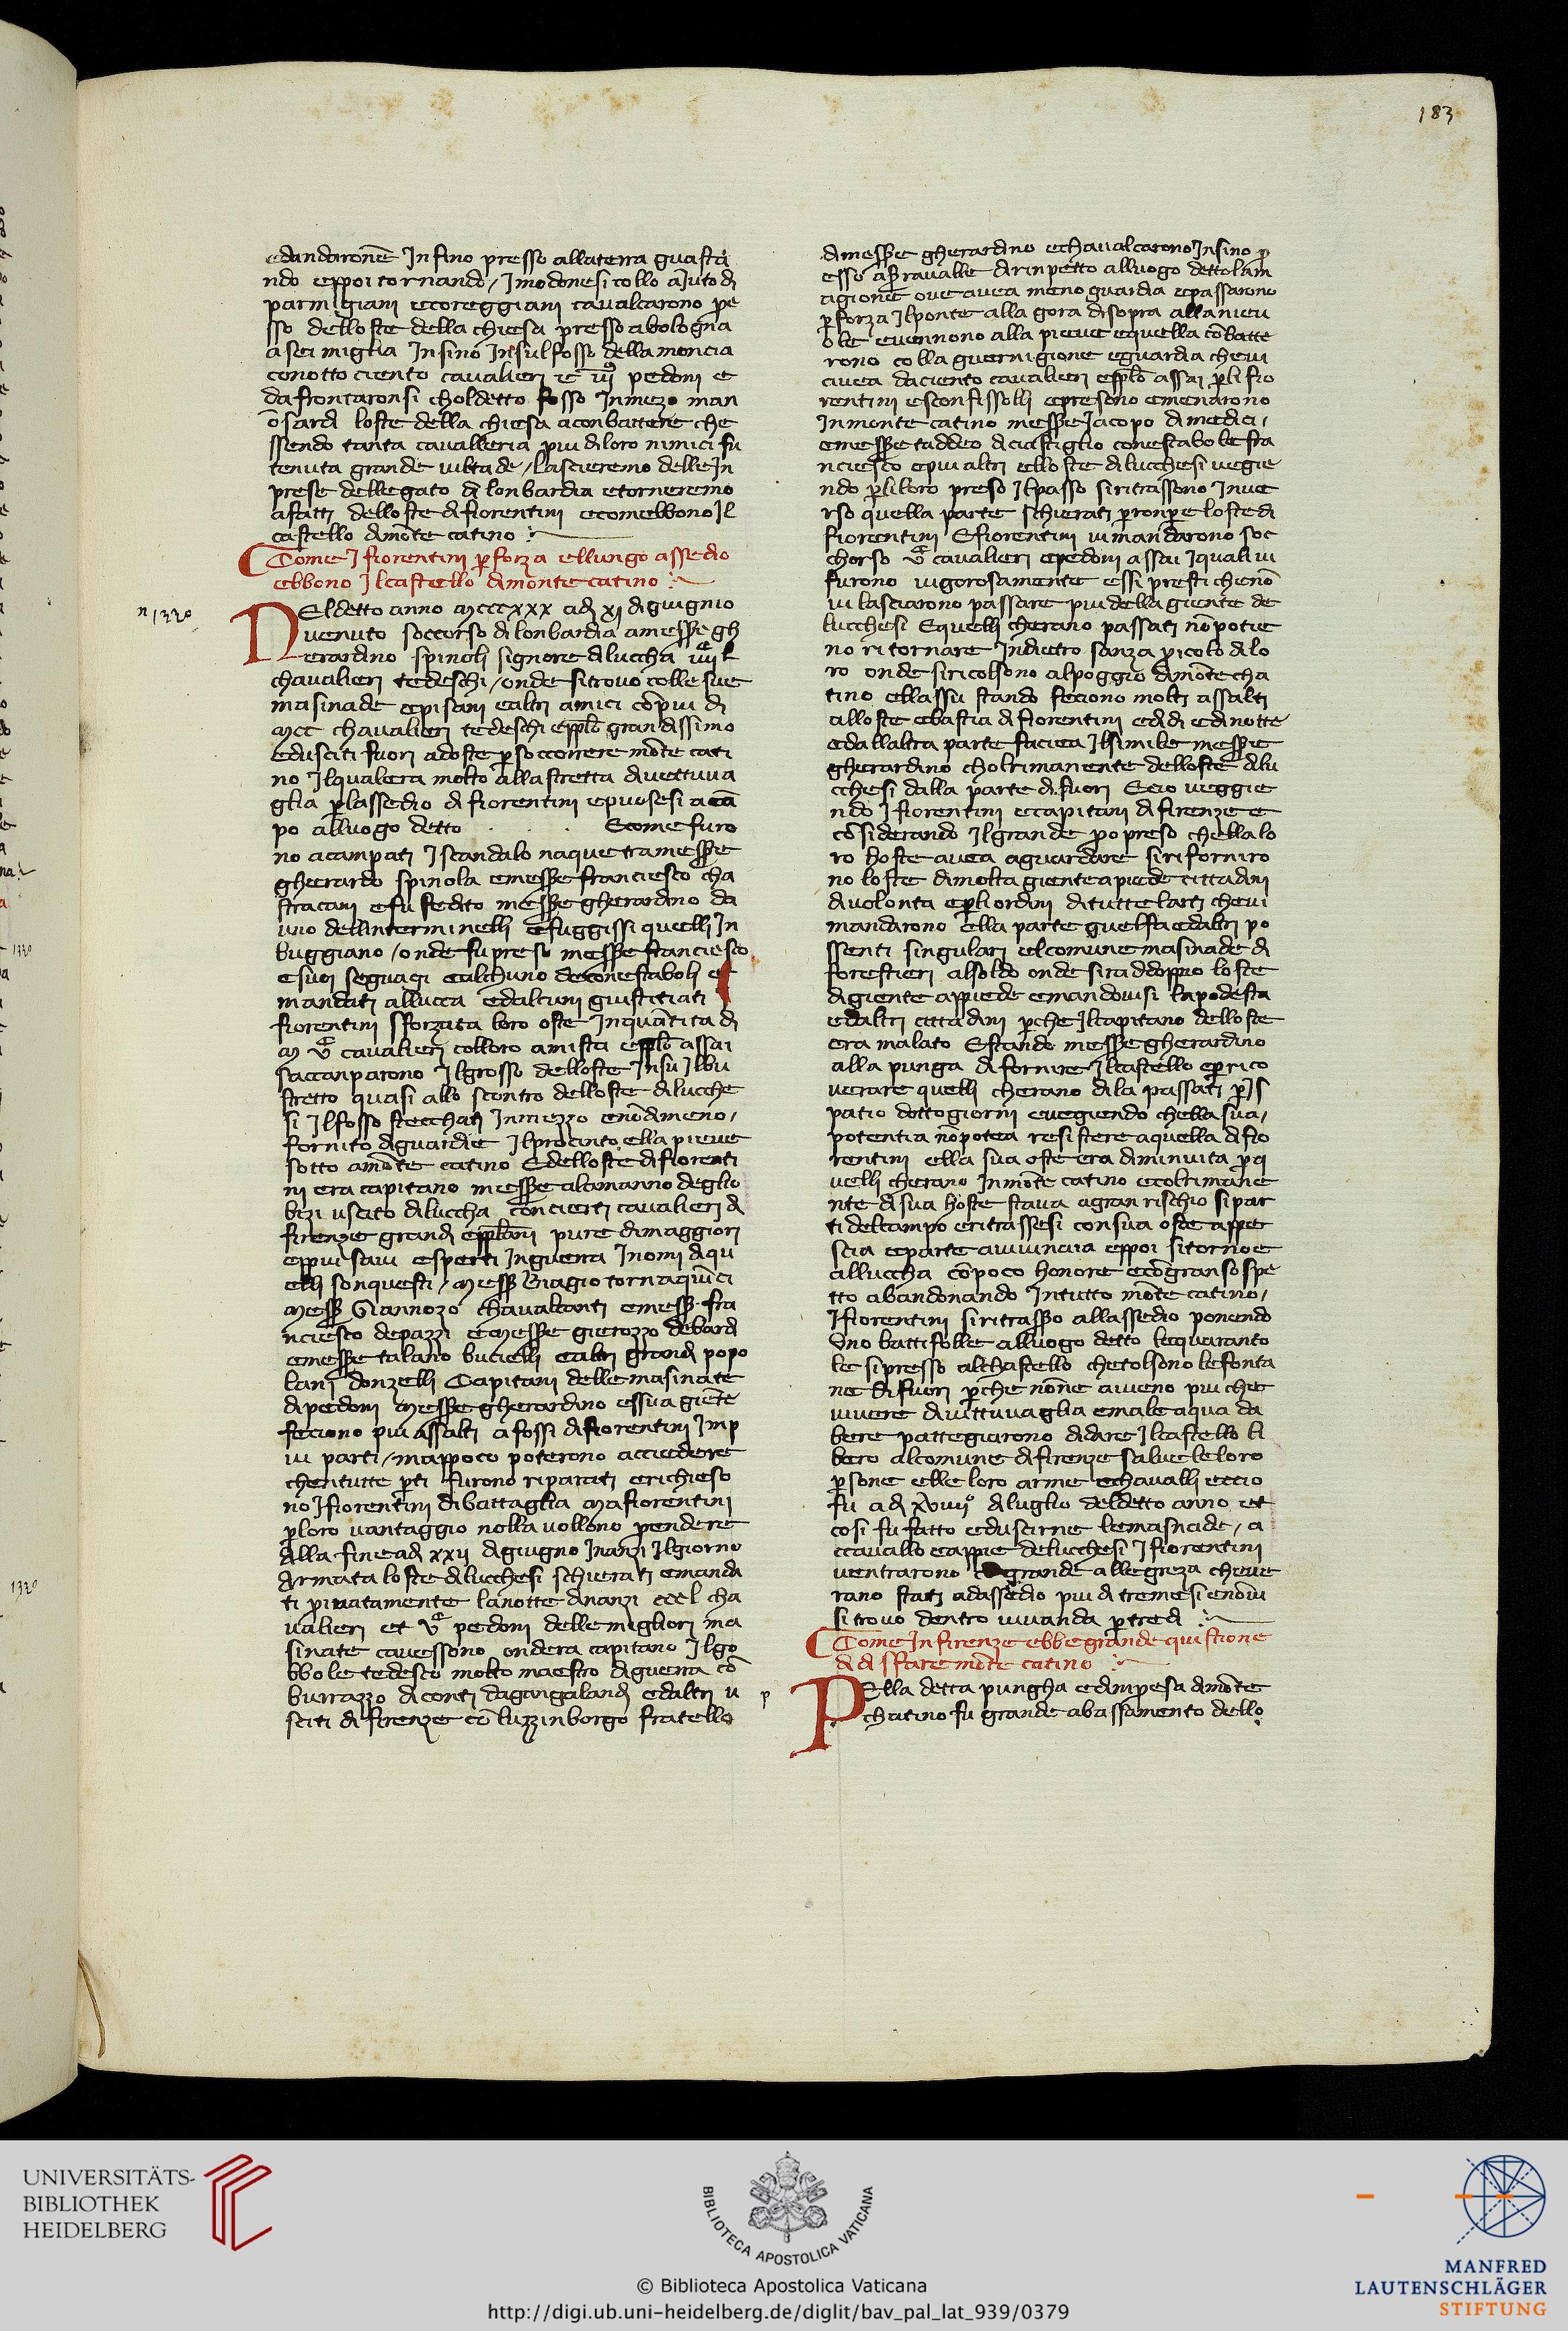 183
edandaronē Jnfino presso allaterra guastā
ndo eppoi tornando / Jmodonesi collo aJuto di
parmigiani ecoreggiani cavalcarono pe
sso dellofte della chiesa presso abologna
asei miglia Jnsino Jnsulfosso della moncia
conotto ciento cavalieri e pedoni e
dafrontaronsi choldetto fosso Jnmezo man
ōsardi lofte della chiesa aconbattere che
ssendo tanta cavalleria piu diloro nimici fu
tenuta grande viltade / lascieremo delleJn
prese dellegato di lonbardia etorneremo
afatti dellofte difiorentini ecomebbonoJl
castello dimōte catino
Come J fiorentini p̄forza ellungo assedio
ebbono Jlcastello dimonte catino
n 1330
NEldetto anno Mcccxxx adi xj digiugnio
venuto soccorso dilonbardia amess̄e gh
erardino spinoli signore dilucha iiijͨ l
chavalieri tedeschi / onde sitrovo colle sue
masinade episani ealtri amici cōpiu di
Mcc chavalieri tedeschi epplō grandissimo
edusciti fuori adofte p̄soccorrere mōte cati
no Jlqualera molto allastretta divettuva
glia p̄lassedio difiorentini epuosesi acā
po alluogo detto . . Ecome furo
no acampati Jscandalo naque tramess̄e
gherardo spinola emess̄e franciesco cha
stracani efu fedito mess̄e gherardino da
uno dellinterminelli efuggissi quelli Jn
buggiano / onde fu preso mess̄e franciesco
esuoi seguaci ealchuno deconestaboli e
mandati allucca edalcuni giustitiati
fiorentini sforzata loro oste Jnquātita di
M vͨ cavalieri colloro amista epplō assai
saccanparono Jlgrosso dellofte Jnsu Jlbu
stretto quasi allo scontro dellofte dilucche
si Jlfosso stecchati Jnmezzo enōdimeno /
fornito diguardie Jlprocinto ella pieve
sotto amōte catino Edellofte difiorenti
ni era capitano mess̄e alamanno deglio
bizi uscito dilucha concierti cavalieri di
firenze grandi epplāni pure dimaggiori
eppiu savi esperti Jnguerra Jnomi diqu
elli sonquesti / Mess̄ Biagio tornaquīci
Mess̄ Giannozo chavalcanti emess̄ fra
nciesco depazzi eMess̄e gierozzo debardi
emess̄e talano bucielli ealtri grandi popo
lani donzelli Capitani delle masinate
dipedoni Mess̄e gherardino essua giēte
feciono piu assalti afossi difiorentini Jmp
iu parti / mappoco poterono acciedere
chentutte pti furono riparati erichieso
no Jfiorentini dibattaglia Mafiorentini
p̄loro vantaggio nolla vollono prendere
Alla fine adi xxij digiugno Jnanzi Jlgiorno
Armata lofte dilucchesi schierati emanda
1330
ti privatamente lanotte dinanzi cccl cha
valieri et vͨ pedoni delle migliori ma
sinate cavessono ondera capitano Jlgo
bbole tedesco molto maestro diguerra cō
burrazzo diconti dagangalandi edaltri u
sciti difirenze cō luzzinborgo fratello
dimess̄e gherardino echavalcarono Jnsino pr
esso aserravalle dirinpetto alluogo dettolam
agionē ove avea meno guardia epassarono
p̄forza Jlponte alla gora disopra allanievu
ole evennono alla pieve equella cōbatte
rono colla guernigione eguardia chevi
avea daciento cavalieri epplō assai p̄li fio
rentini esconfissolli epresono emenarono
Jnmonte catino mess̄e Jacopo dimedici /
emess̄e taddeo dicastiglio conestabole fra
nciesco epiu altri ellofte dilucchesi vegie
ndo p̄liloro preso Jlpasso siritrassono Jnve
rso quella parte schierati p̄ronpere lofte di
fiorentini Efiorentini vimandarono soc
chorso vͨ cavalieri epedoni assai Jquali vi
furono vigorosamente essi presti chenō
vi lasciarono passare piu della giente de
lucchesi Equelli cherano passati nōpotie
no ritornare Jndietro sanza picolo dilo
ro onde siricolsono alpoggio dimōte cha
tino ellassu stando feciono molti assalti
allofte ebastia difiorentini edidi edinotte
edallaltra parte faciea Jlsimile mess̄e
gherardino cholrimanente dellofte dilu
cchesi dalla parte difuori Ecio veggie
ndo Jfiorentini ecapitani difirenze e
cōsiderando Jlgrande porpreso chellalo
ro hofte avea aguardare sirifornirо
no lofte dimolta giente apiede cittadini
divolonta ep̄liordini ditutte larti chevi
mandarono ella parte guelfa edaltri po
ssenti singulari elcomune masinade di
forestieri alsoldo onde siraddoppio lofte
digiente appiede emandovisi lapodesta
edaltri cittadini p̄che Jlcapitano dellofte
era malato Estando mess̄e gherardino
alla punga difornire Jlcastello ep̄rico
verare quelli cherano dila passati p̄Js
patio dottogiorni evegiendo chella sua /
potentia nōpotea resistere aquella difio
rentini ella sua ofte era diminuita p̄q
uelli cherano Jnmōte catino ecolrimane
nte disua hofte stava agran rischio sipar
ti delcampo eritrassesi consua ofte appe
scia eparte avivinaia eppoi sitornoe
alluccha cōpoco honore ecōgran sospe
tto abandonando Jntutto mōte catino /
Jfiorentini siritrasso allassedio ponendo
Uno battifolle alluogo detto lequaranto
le sipresso alchastello chetolsono lefonta
ne difuori p̄che nonne avieno piu che
vivere divittuvaglia emale aqua da
bere pattegiarono didare Jlcastello li
bero alcomune difirenze salve leloro
p̄sone elle loro arme echavalli eccio
fu adi xviiij° diluglio deldetto anno et
cosi fu fatto eduscirne lemasnade / a
ccavallo eappie delucchesi Jfiorentini
ventrarono grande allegreza cheve
rano stati adassedio piu di tremesi enōvi
sitrovo dentro vivanda p̄tredi
Come Jnfirenze ebbe grande quistione
didisfare mōte catino
p
PElla detta pungha edimpesa dimōte
chatino fu grande abassamento dello
UNIVERSITÄTS-
BIBLIOTHEK
HEIDELBERG
BIBLIOTECA APOSTOLICA VATICANA
© Biblioteca Apostolica Vaticana
http://digi.ub.uni-heidelberg.de/diglit/bav_pal_lat_939/0379
MANFRED
LAUTENSCHLÄGER
STIFTUNG